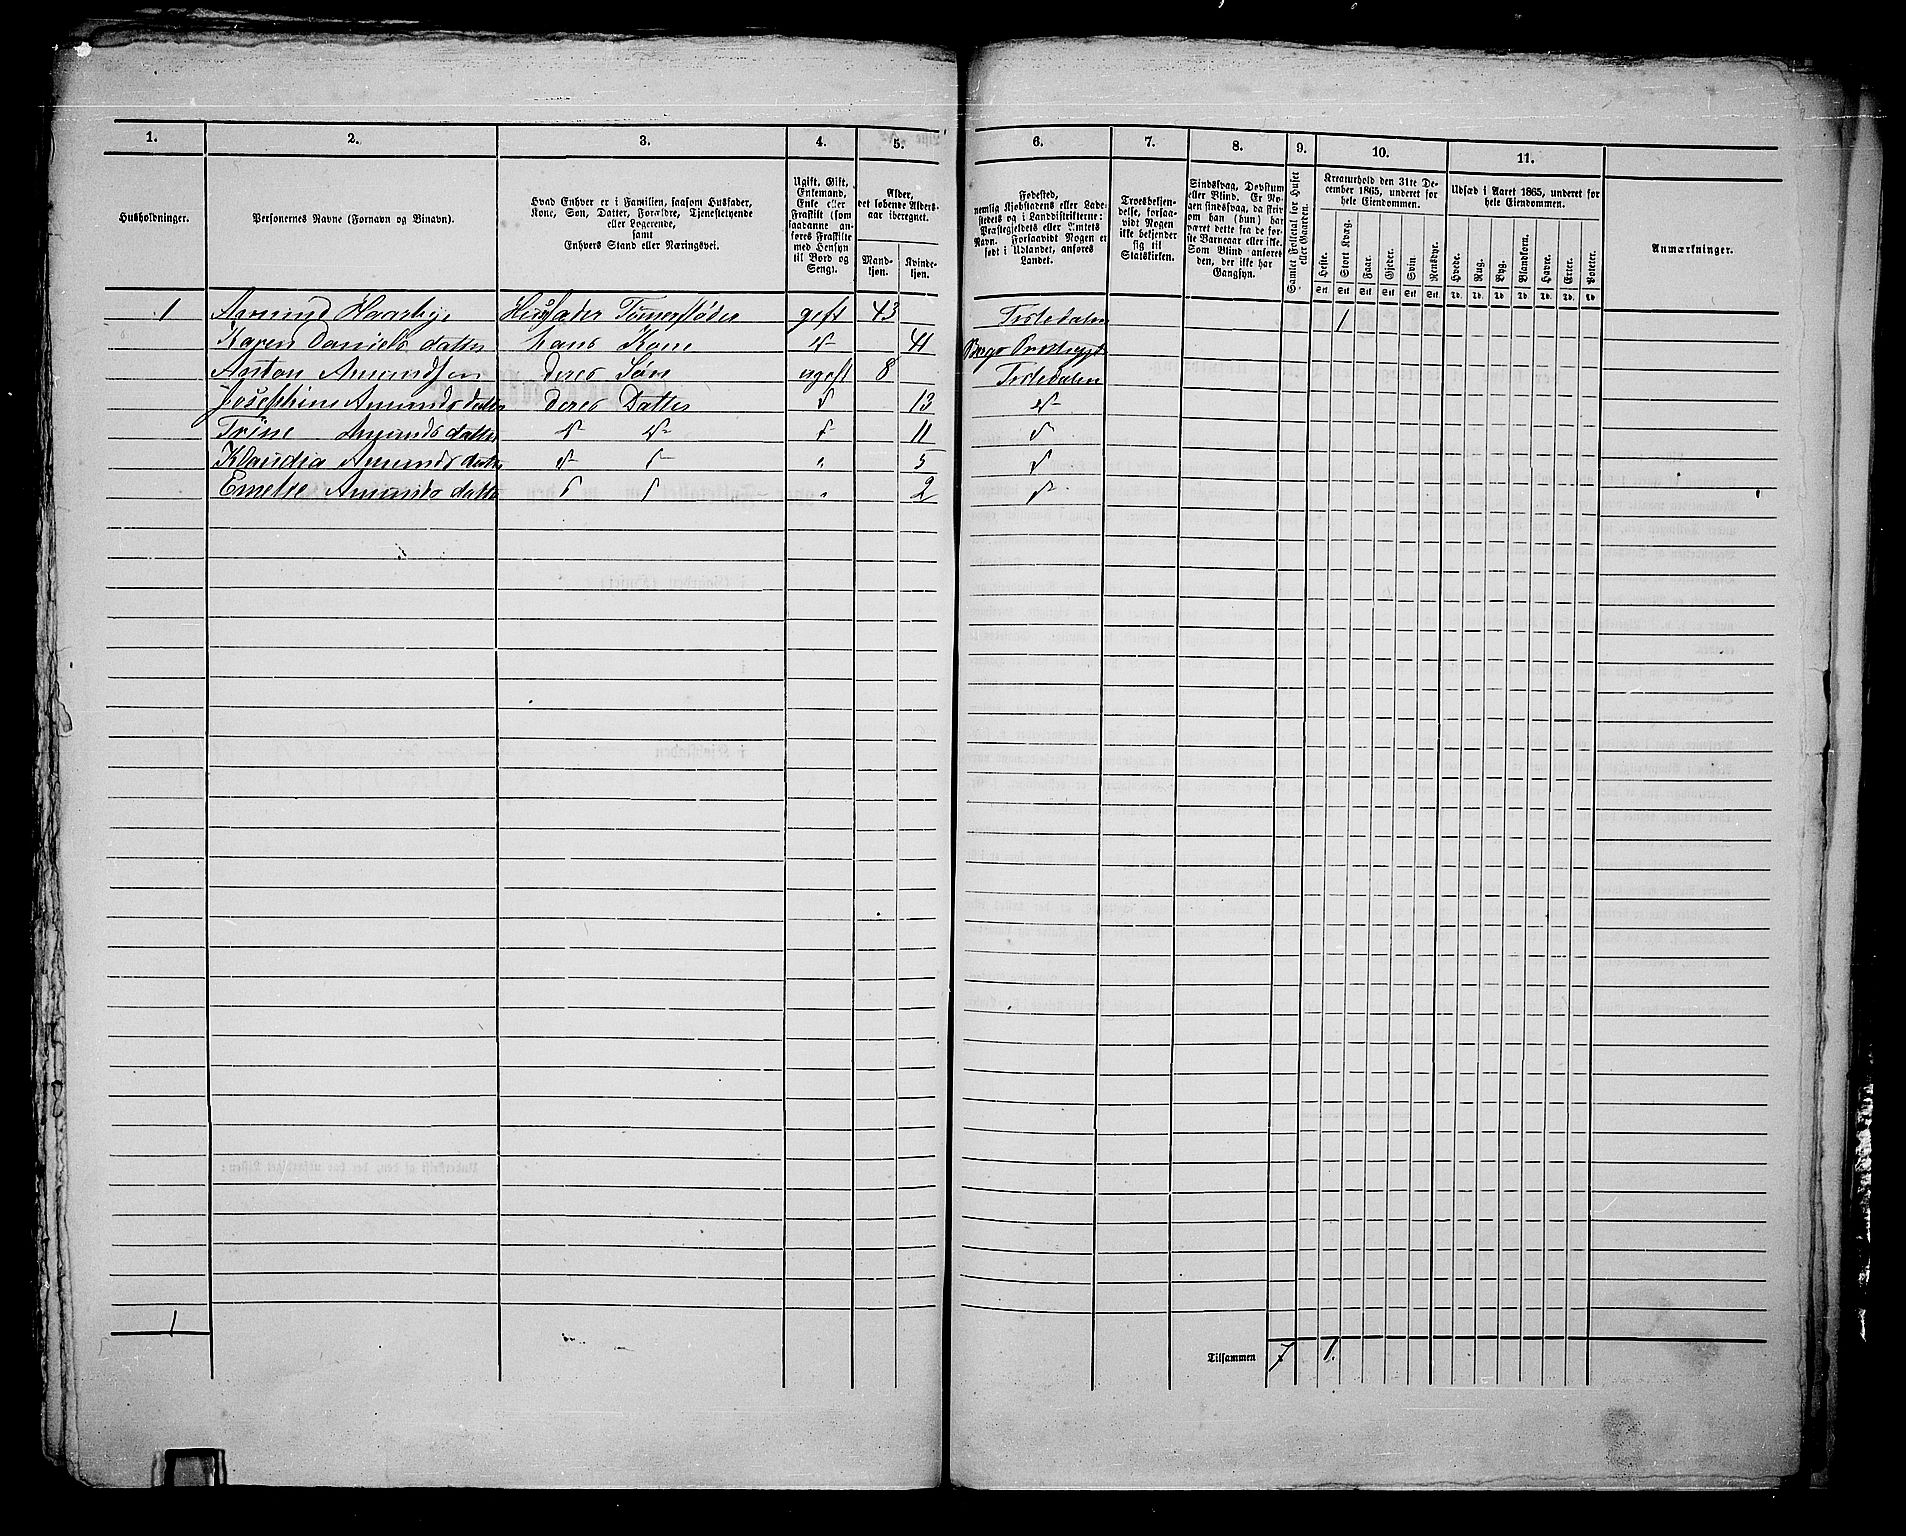 1. 2. 3. 4. 5. 6. 7. 8. 9. 10. 11.
Husholdninger.
Personernes Navne (Fornavn og Binavn).
Hvad Enhver er i Familien, saasom Husfader,
Kone, Søn, Datter, Forældre, Tjenestetyende
eller Logerende,
samt
Enhvers Stand eller Næringsvei.
Ugift, Gift,
Enkemand,
Enke eller
Fraskilt (som
saadanne an-
føres Fraskilte
med Hensyn
til Bord og
Seng).
Alder,
det løbende Alders-
aar iberegnet.
Mand-
kjøn.
Kvinde-
kjøn.
Fødested,
nemlig Kjøbstadens eller Lade-
stedets og i Landdistrikterne:
Præstegjeldets eller Amtets
Navn. Forsaavidt Nogen er
født i Udlandet, anføres
Landet.
Troesbekjen-
delse, forsaa-
vidt Nogen
ikke bekjender
sig til
Statskirken.
Sindssvag, Døvstum
eller Blind. Er No-
gen sindssvag, da skriv
om han (hun) har
været dette fra de før-
ste Barneaar eller ikke.
Som Blind anføres
den, der ikke har
Gangsyn.
Samlet Folketal for Huset
eller Gaarden.
Kreaturhold den 31te De-
cember 1865, underet for
hele Eiendommen.
Heste. Stort Kvæg. Faar. Gjeder. Svin. Rensdyr.
Stk. Stk. Stk. Stk. Stk. Stk.
Udsæd i Aaret 1865, underet for
hele Eiendommen.
Hvede. Rug. Byg. Blandkorn. Havre. Erter. Poteter.
Td. Td. Td. Td. Td. Td. Td.
Anmærkninger.
1 Amund Haarbye Husfader Tømerfløder gift 43 Tistedalen 1
Karen Daniels datter hans Kone 41
Anton Amundsen deres Søn ugift 8 Tistedalen
Josephine Amunds datter deres Datter 13
Trine Amunds datter 11
Klaudia Amunds datter 5
Emelie Amunds datter 2
1
Tilsammen 7 1.